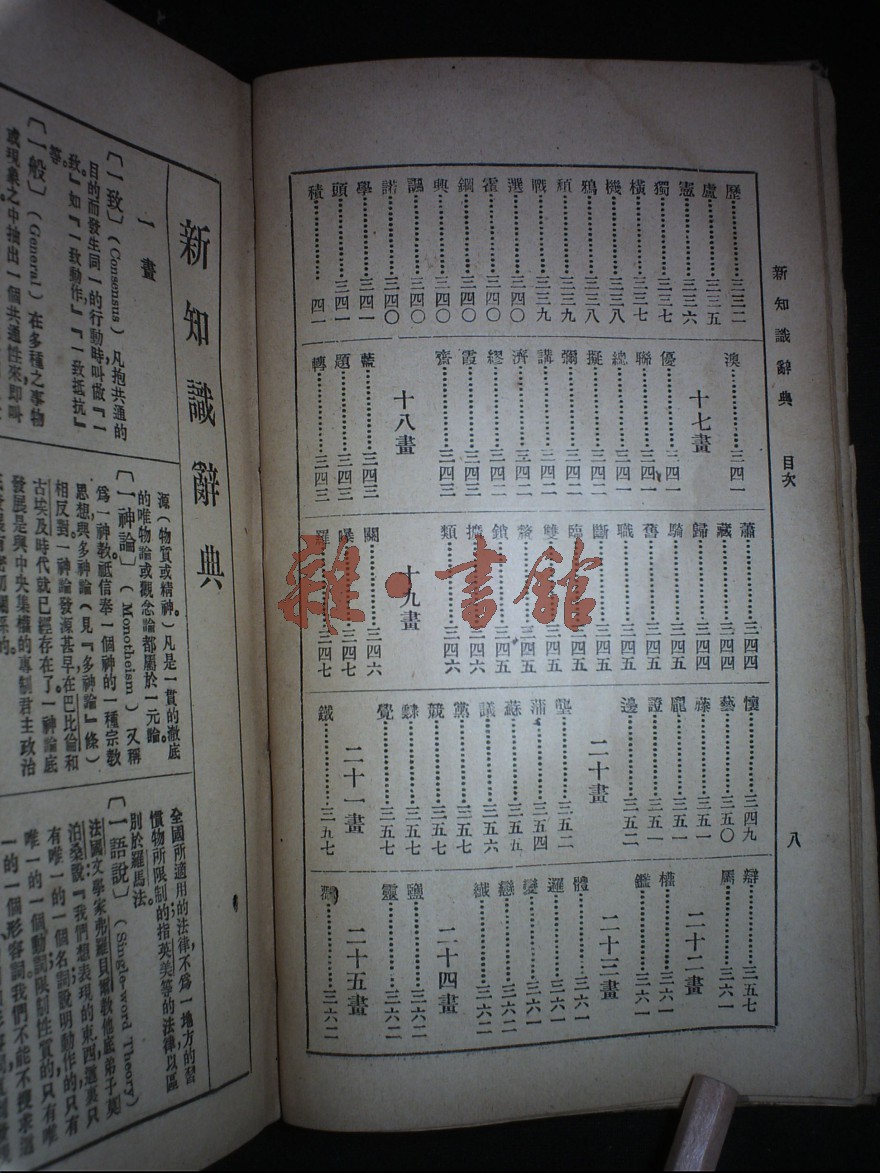 新知識辭典　目次
八
歷 三三二
盧 三三五
憲 三三六
獨 三三七
橫 三三七
機 三三八
鴉 三三八
頹 三三九
戰 三三九
選 三四〇
霍 三四〇
鋼 三四〇
興 三四〇
諷 三四〇
諾 三四〇
學 三四一
頭 三四一
積 四一
澳 三四一
十七畫
優 三四一
聯 三四一
總 三四二
擬 三四二
彌 三四二
講 三四二
濟 三四二
繆 三四二
霞 三四二
齋 三四二
十八畫
藍 三四三
題 三四三
轉 三四三
蕭 三四四
藏 三四四
歸 三四四
騎 三四四
舊 三四五
職 三四五
斷 三四五
臨 三四五
雙 三四五
鎖 三四五
擴 三四六
類 三四六
十九畫
關 三四六
曝 三四七
羅 三四七
懷 三四九
藝 三五〇
藤 三五一
龐 三五一
證 三五一
邊 三五二
二十畫
壟 三五二
蒲 三五四
蘇 三五五
議 三五六
黨 三五七
競 三五七
覺 三五七
二十一畫
鐵 三五七
辯 三五七
屬 三六一
二十二畫
權 三六一
鑑 三六一
二十三畫
體 三六一
邏 三六一
變 三六一
戀 三六二
纖 三六二
二十四畫
鹽 三六二
靈 三六二
二十五畫
三六二
新知識辭典
一畫
〔一致〕(Consensus) 凡抱共通的
目的而發生同一的行動時叫做『一
致。』如『一致動作』『一致抵抗』
等。
〔一般〕(General) 在多種之事物
或現象之中抽出一個共通性來即叫
源(物質或精神。)凡是一貫的澈底
的唯物論或觀念論都屬於一元論。
〔一神論〕(Monotheism) 又稱
爲一神教祗信奉一個神的一種宗教
思想與多神論(見『多神論』條)
相反對一神論發源甚早在巴比倫和
古埃及時代就已經存在了。一神論底
發展是與中央集權的專制君主政治
全國所適用的法律不爲一地方的習
慣物所限制的指英美等的法律以區
別於羅馬法。
〔一語說〕(Single-word Theory)
法國文學家弗羅貝爾教他底弟子莫
泊桑說：『我們想表現的東西這裏只
有唯一的一個名詞說明動作的只有
唯一的一個動詞限制性質的只有唯
一的一個形容詞我們不能不搜求這
雜·書館